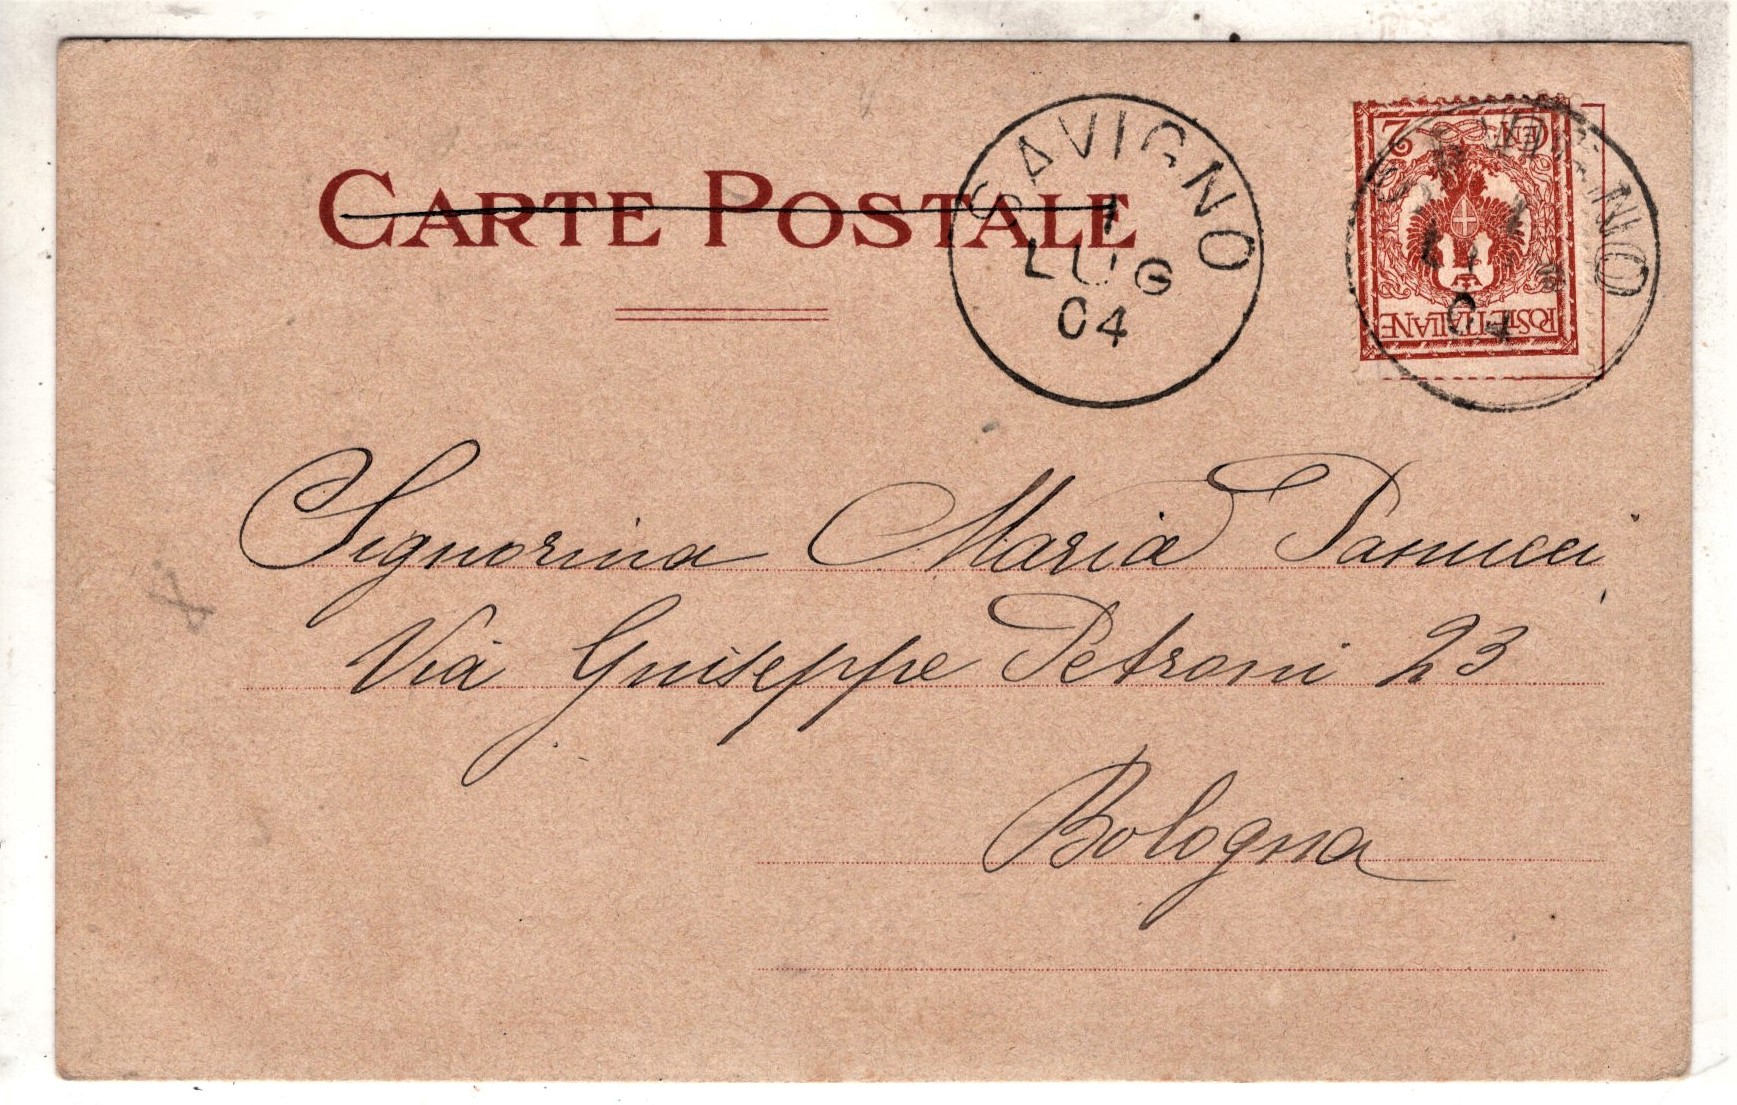 CARTE POSTALE
SAVIGNO
1
LUG
04
2
CEN
POSTE ITALIANE
SAVIGNO
04
Signorina Maria Panucci
Via Giuseppe Petroni 23
Bologna